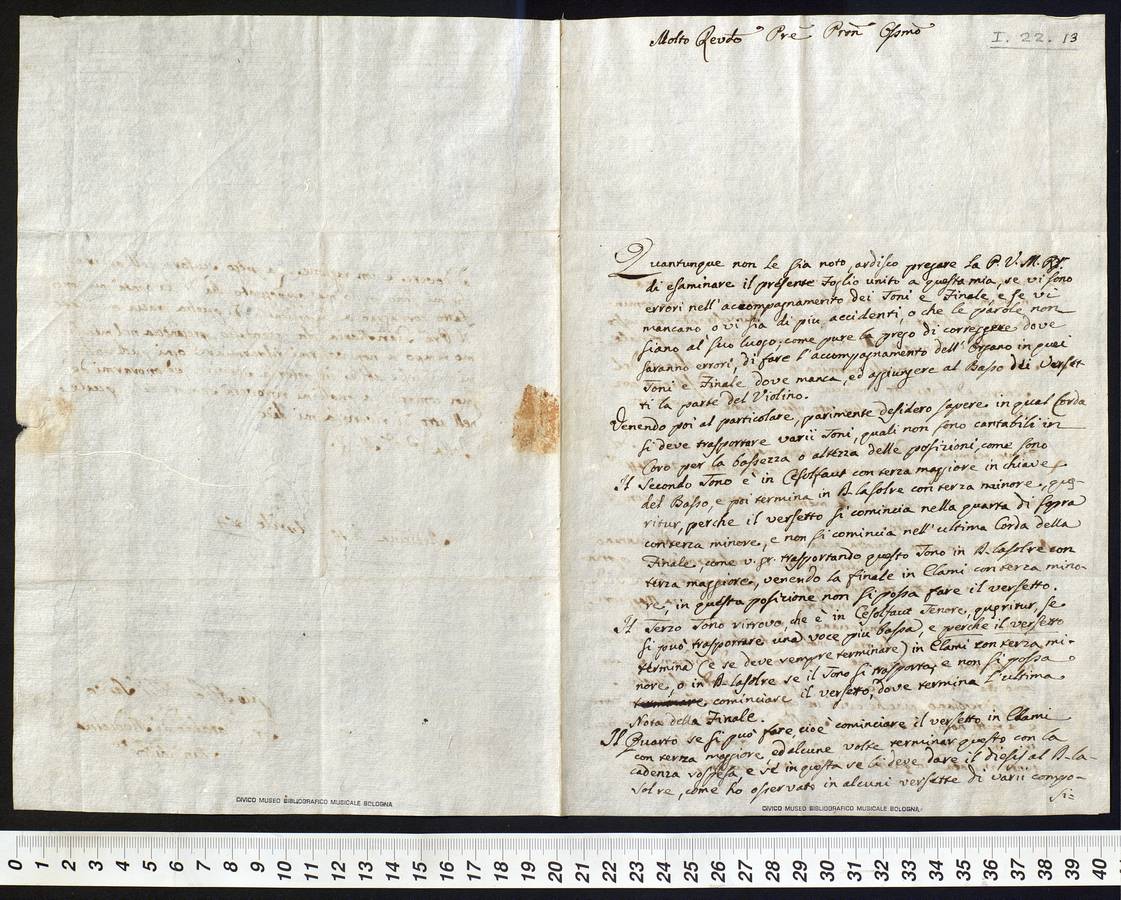 Molto Revdo Pre Pron Ossmo
I. 22. 13
Quantunque non le sia noto, ardisco pregare la P. V. M. R.
di esaminare il presente Foglio unito a questa mia, se vi sono
errori nell'accompagnamento dei Toni e Finale, e se vi
mancano o vi sia di più accidenti, o che le parole non
siano al suo luogo, come pure la prego di correggere dove
saranno errori, di fare l'accompagnamento dell'Organo in quei
Toni e Finale dove manca, ed aggiungere al Basso dei Verset
ti la parte del Violino.
Venendo poi al particolare, parimente desidero sapere in qual Corda
si deve trasportare varii Toni, quali non sono cantabili in
Coro per la bassezza o altezza delle posizioni, come sono
Il Secondo Tono è in Cesolfaut con terza maggiore in chiave
del Basso, e poi termina in A-lasolre con terza minore, quę-
ritur, perche il versetto si comincia nella quarta di sopra
con terza minore, e non si comincia nell'ultima Corda della
Finale, come v. gr. trasportando questo Tono in A-lasolre con
terza maggiore, venendo la finale in Elami con terza mino-
re, in questa posizione non si possa fare il versetto.
Il Terzo Tono ritrovo, che è in Cesolfaut Tenore, quęritur, se
si può trasportare una voce più bassa, e perche il versetto
termina (e se deve sempre terminare) in Elami con terza mi-
nore, o in A-lasolre se il Tono si trasporta, e non si possa
terminare cominciare il versetto, dove termina l'ultima
Nota della Finale.
Il Quarto se si può fare, cioè cominciare il versetto in Elami
con terza maggiore, ed alcune volte terminar questo con la
cadenza sospesa, e se in questa se le deve dare il diesis al A-la-
solre, come ho osservato in alcuni versette di varii compo-
si=
CIVICO MUSEO BIBLIOGRAFICO MUSICALE BOLOGNA
CIVICO MUSEO BIBLIOGRAFICO MUSICALE BOLOGNA
0 1 2 3 4 5 6 7 8 9 10 11 12 13 14 15 16 17 18 19 20 21 22 23 24 25 26 27 28 29 30 31 32 33 34 35 36 37 38 39 40